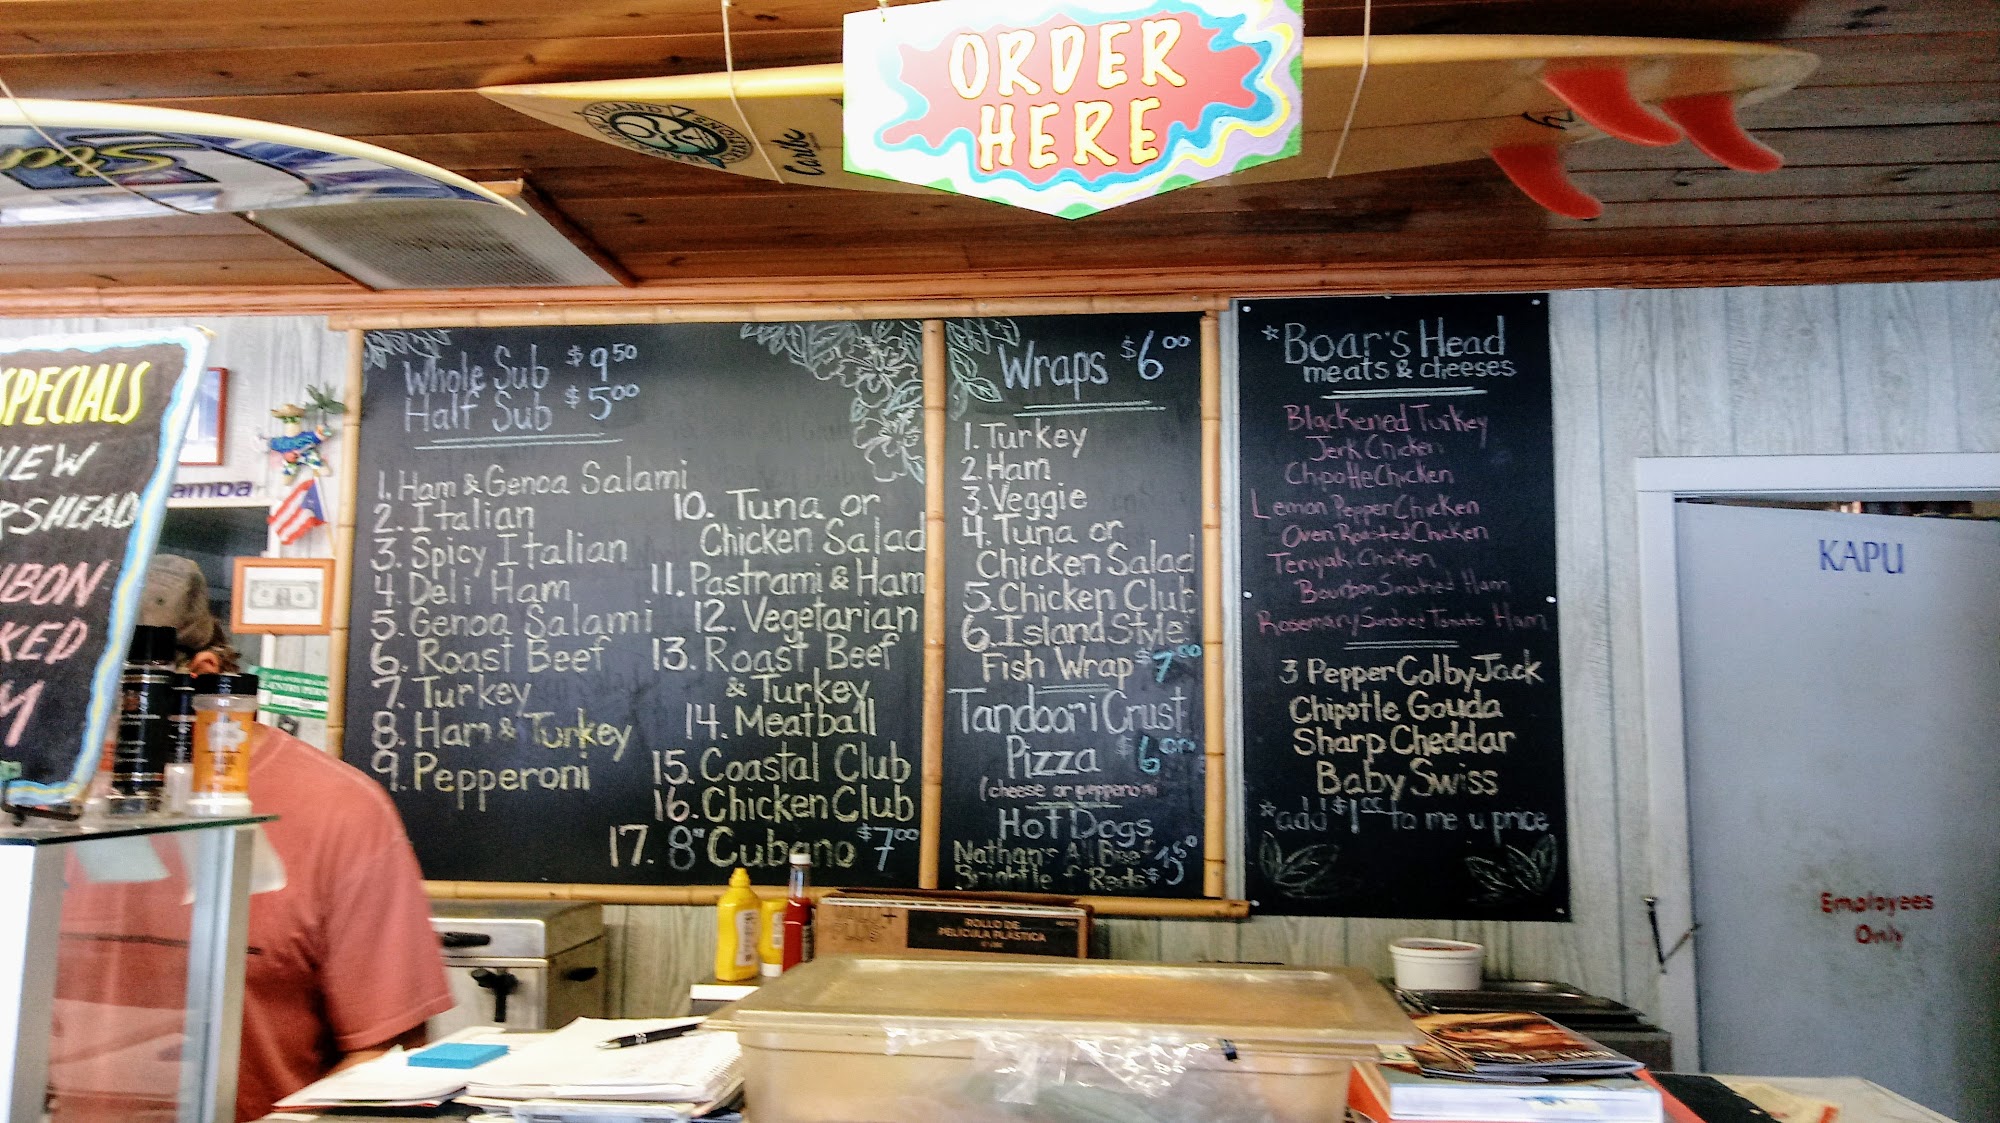 ORDER
HERE
Caribe
SPECIALS
NEW
RSHEAD
KED
Whole Sub $9.50
Half Sub $5.00
1. Ham & Genoa Salami
2. Italian
3. Spicy Italian
4. Deli Ham
5. Genoa Salami
6. Roast Beef
7. Turkey
8. Ham & Turkey
9. Pepperoni
10. Tuna or
Chicken Salad
11. Pastrami & Ham
12. Vegetarian
13. Roast Beef
& Turkey
14. Meatball
15. Coastal Club
16. Chicken Club
17. 8" Cubano $7.00
Wraps $6.00
1. Turkey
2. Ham
3. Veggie
4. Tuna or
Chicken Salad
5. Chicken Club
6. Island Style
Fish Wrap $7.00
Tandoori Crust
Pizza $6.00
(cheese or pepperoni
Hot Dogs
Nathan's All Beef
*Boar's Head
meats & cheeses
Blackened Turkey
Jerk Chicken
Chipotle Chicken
Lemon Pepper Chicken
Oven Roasted Chicken
Teriyak Chicken
Bourbon Smoked Ham
Rosemary Sundried Tomato Ham
3 Pepper Colby Jack
Chipotle Gouda
Sharp Cheddar
Baby Swiss
*add $1.00 to me u price
KAPU
Employees
Only
ROLLO DE
PELICULA PLASTICA